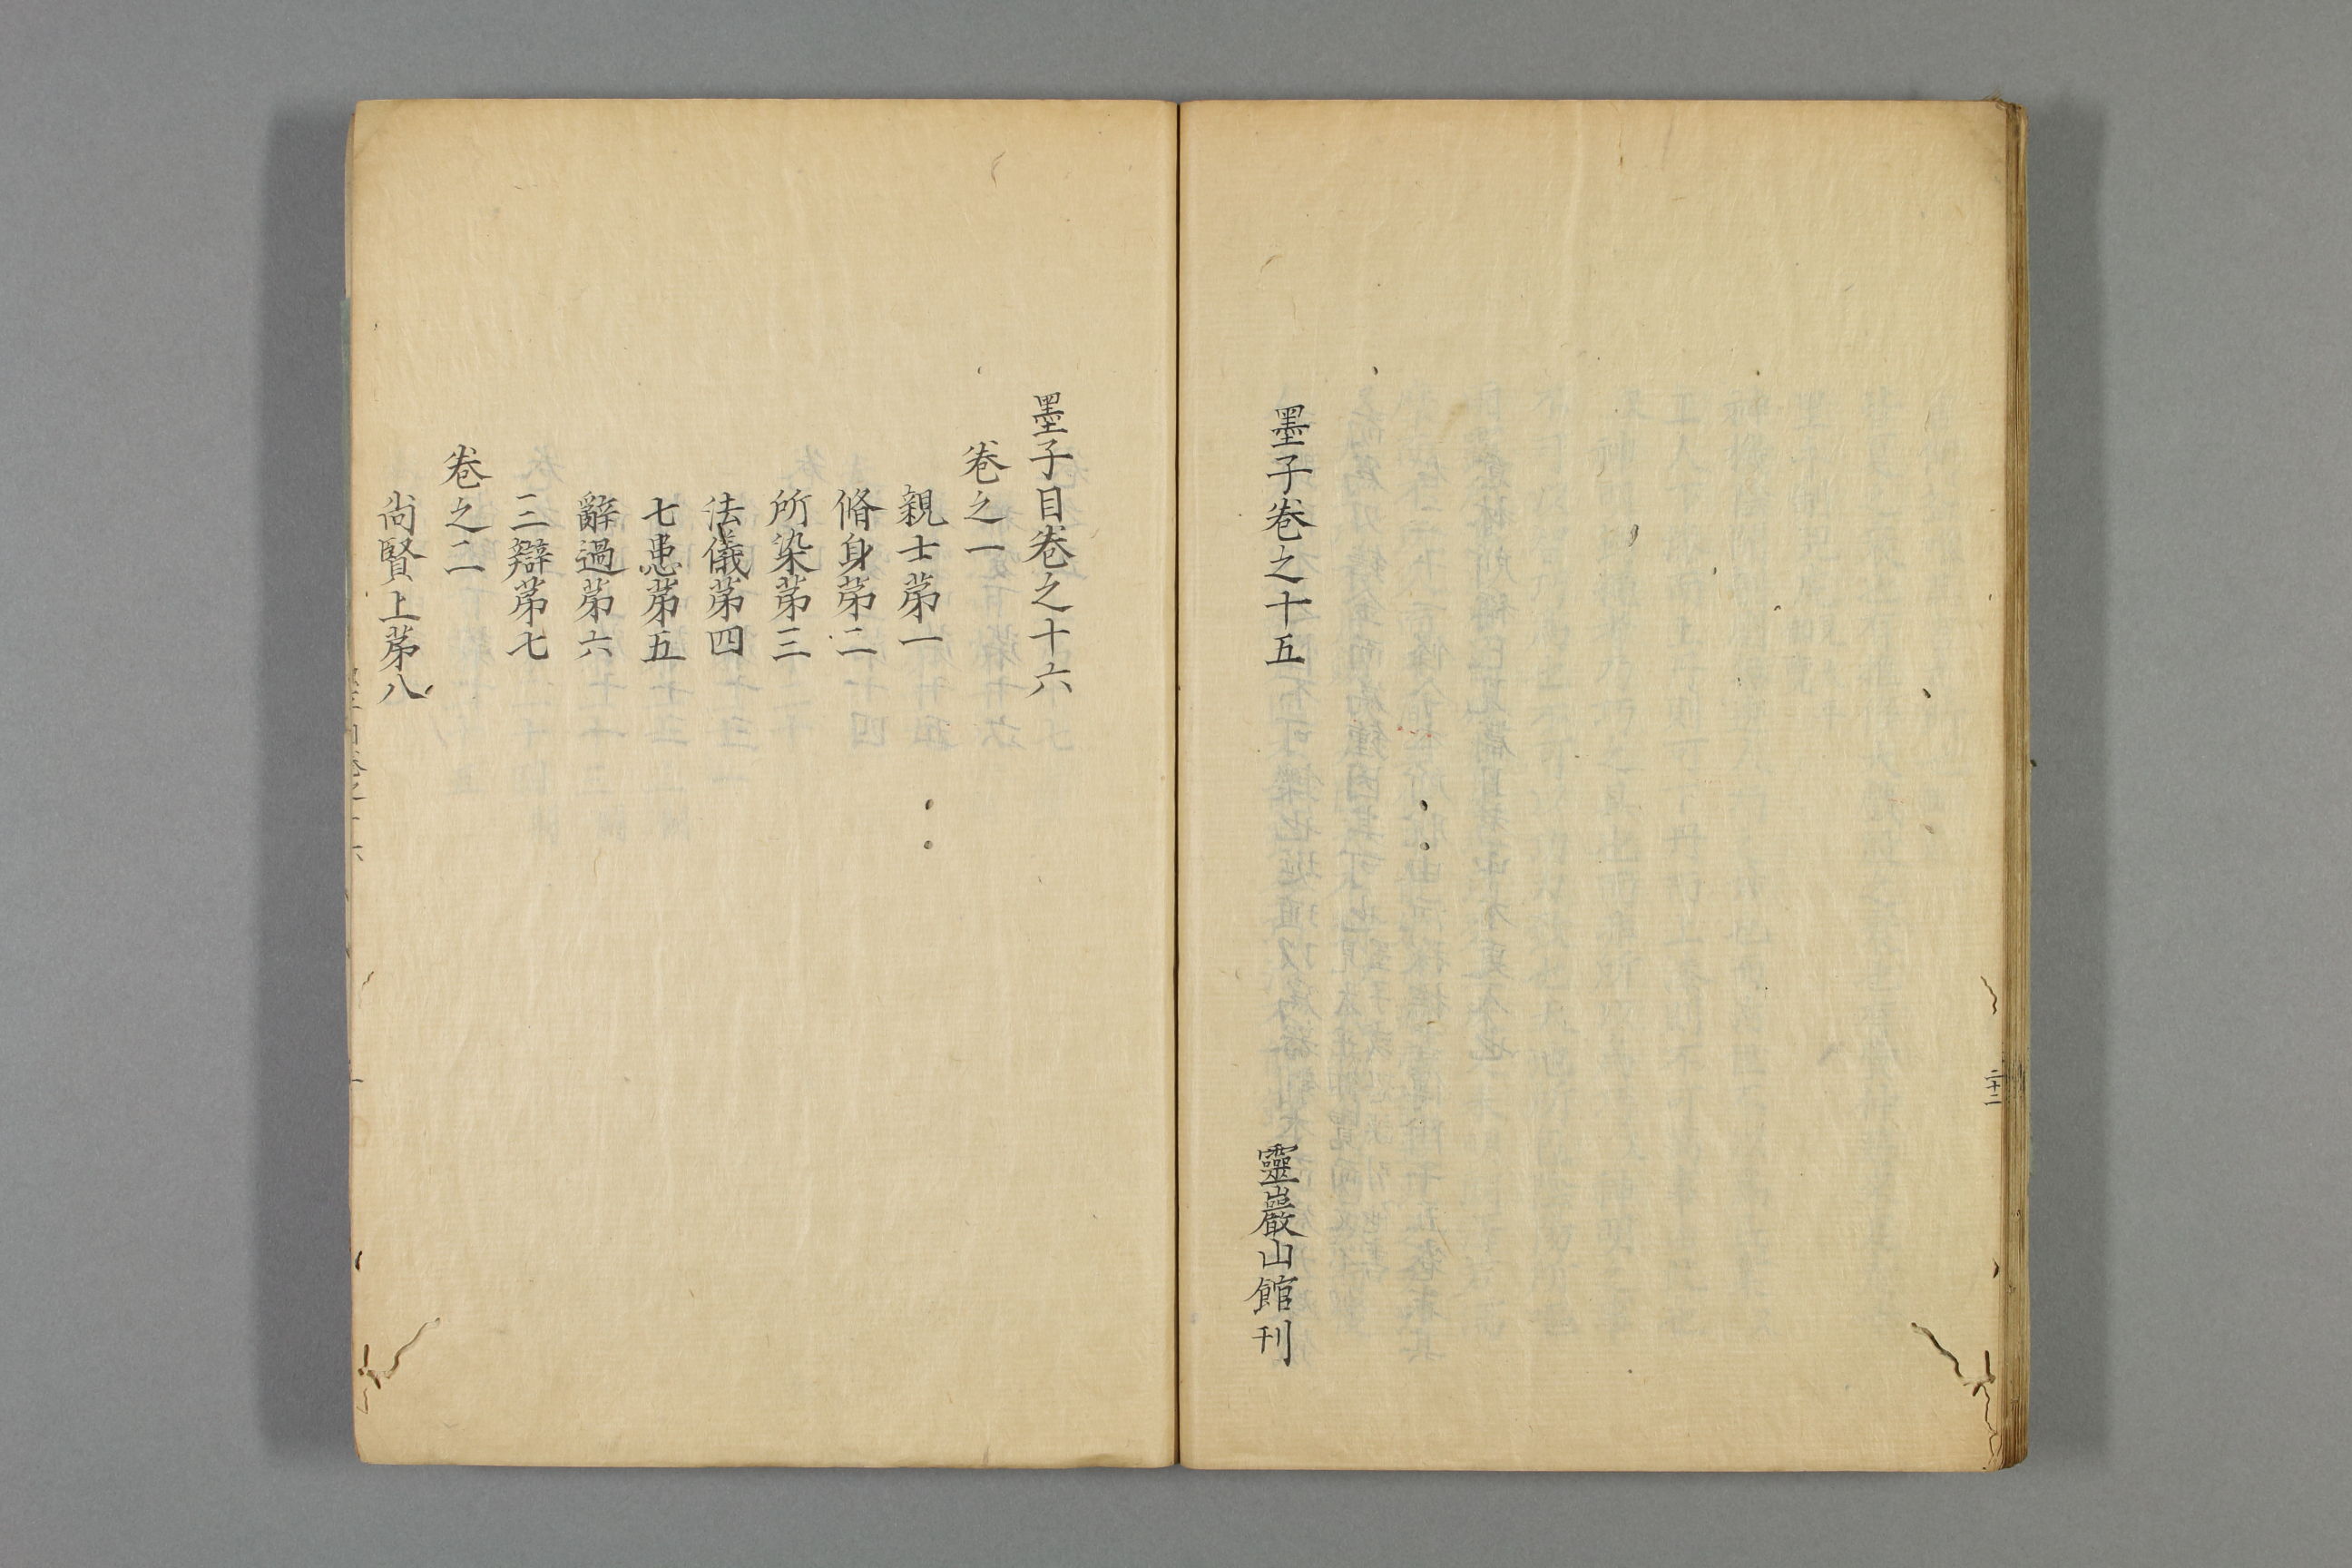 墨子卷之十五
靈巖山館刊
二十二
墨子目卷之十六
卷之一
親士苐一
脩身苐二
所染苐三
法儀苐四
七患苐五
辭過苐六
三辯苐七
卷之二
尚賢上苐八